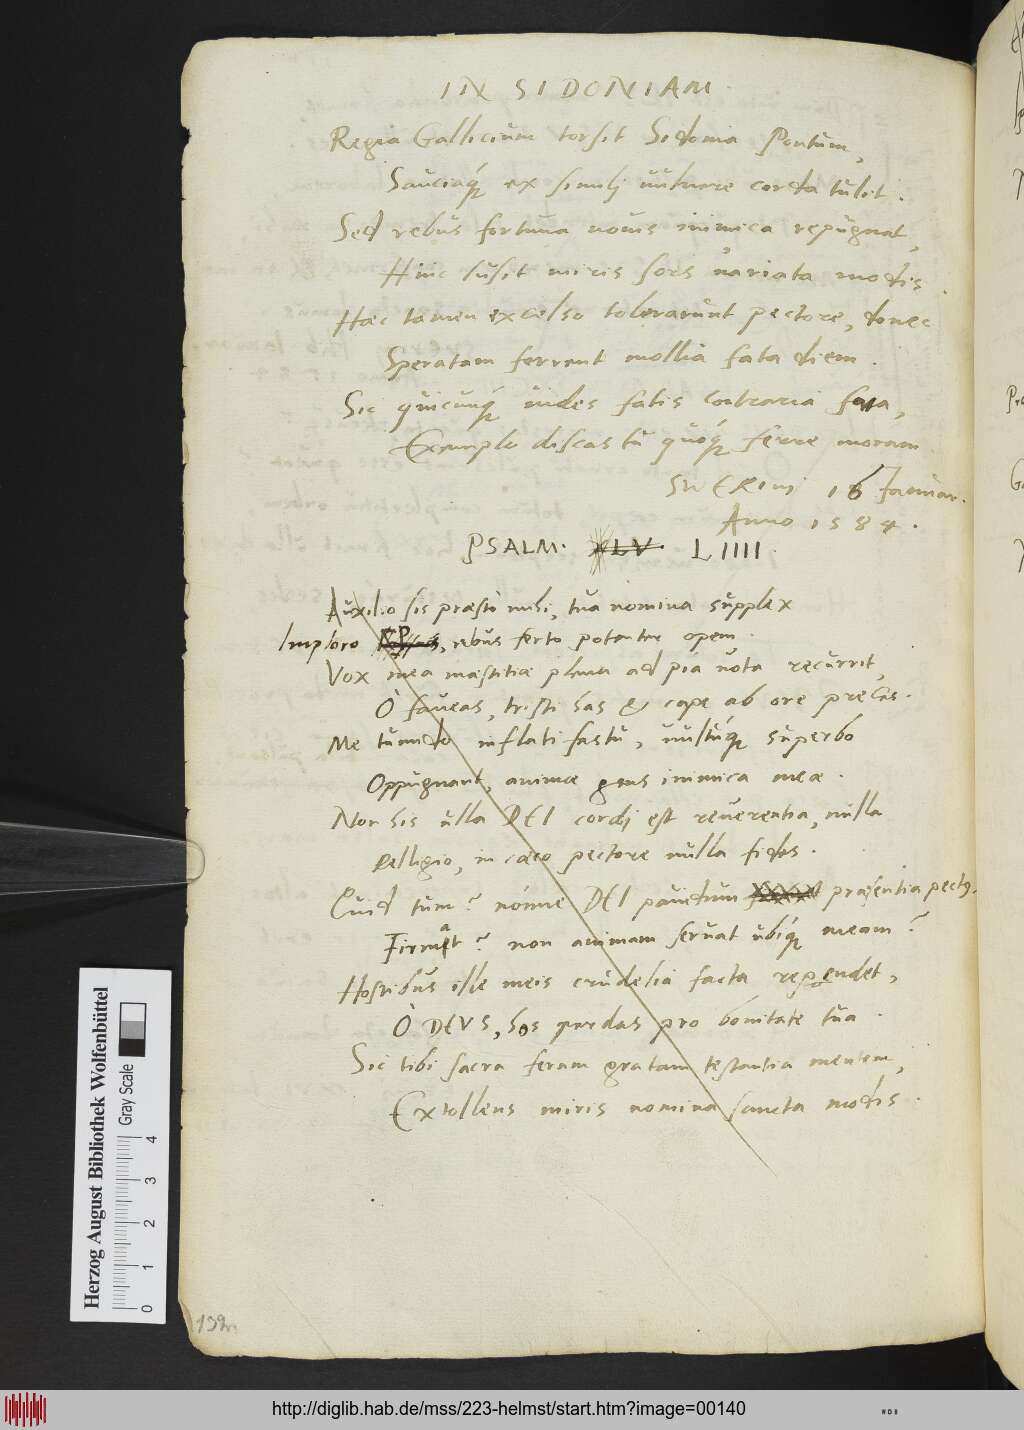 IN SIDONIAM.
Regia Gallicium torsit Sidonia Pontum,
Sauciaq́ue ex simili uulnere corda tulit.
Sed rebus fortuna nouis inimica repugnat,
Hinc lusit miris sors uariata modis.
Haec tamen excelso tolerarunt pectore, donec
Speratam ferrent mollia fata diem.
Sic quicunq́ue uides fatis contraria fata,
Exemplo discas tu quoq́ue ferre moram
SWERINI 16 Januar.
Anno 1584.
PSALM. XLV. LIIII.
Auxilio sis praesto mihi, tua nomina supplex
Imploro, rebus ferto potenter opem.
Vox mea maestitiae plena ad pia uota recurrit,
Ô faueas, tristi has & cape ab ore preces.
Me tumido inflati fastu, uultuq́ue superbo
Oppugnant, animae gens inimica meae.
Non his ulla DEI cordi est reuerentia, nulla
Relligio, in caeco pectore nulla fides.
Quid tum? nónne DEI pauidum praesentia pectus
Firmat? non animam seruat ubiq́ue meam?
Hostibus ille meis crudelia facta rependet,
Ô DEUS, hos perdas pro bonitate tua.
Sic tibi sacra feram gratam testantia mentem,
Extollens miris nomina sancta modis.
132v.
Herzog August Bibliothek Wolfenbüttel
Gray Scale
0 1 2 3 4
http://diglib.hab.de/mss/223-helmst/start.htm?image=00140
WDB